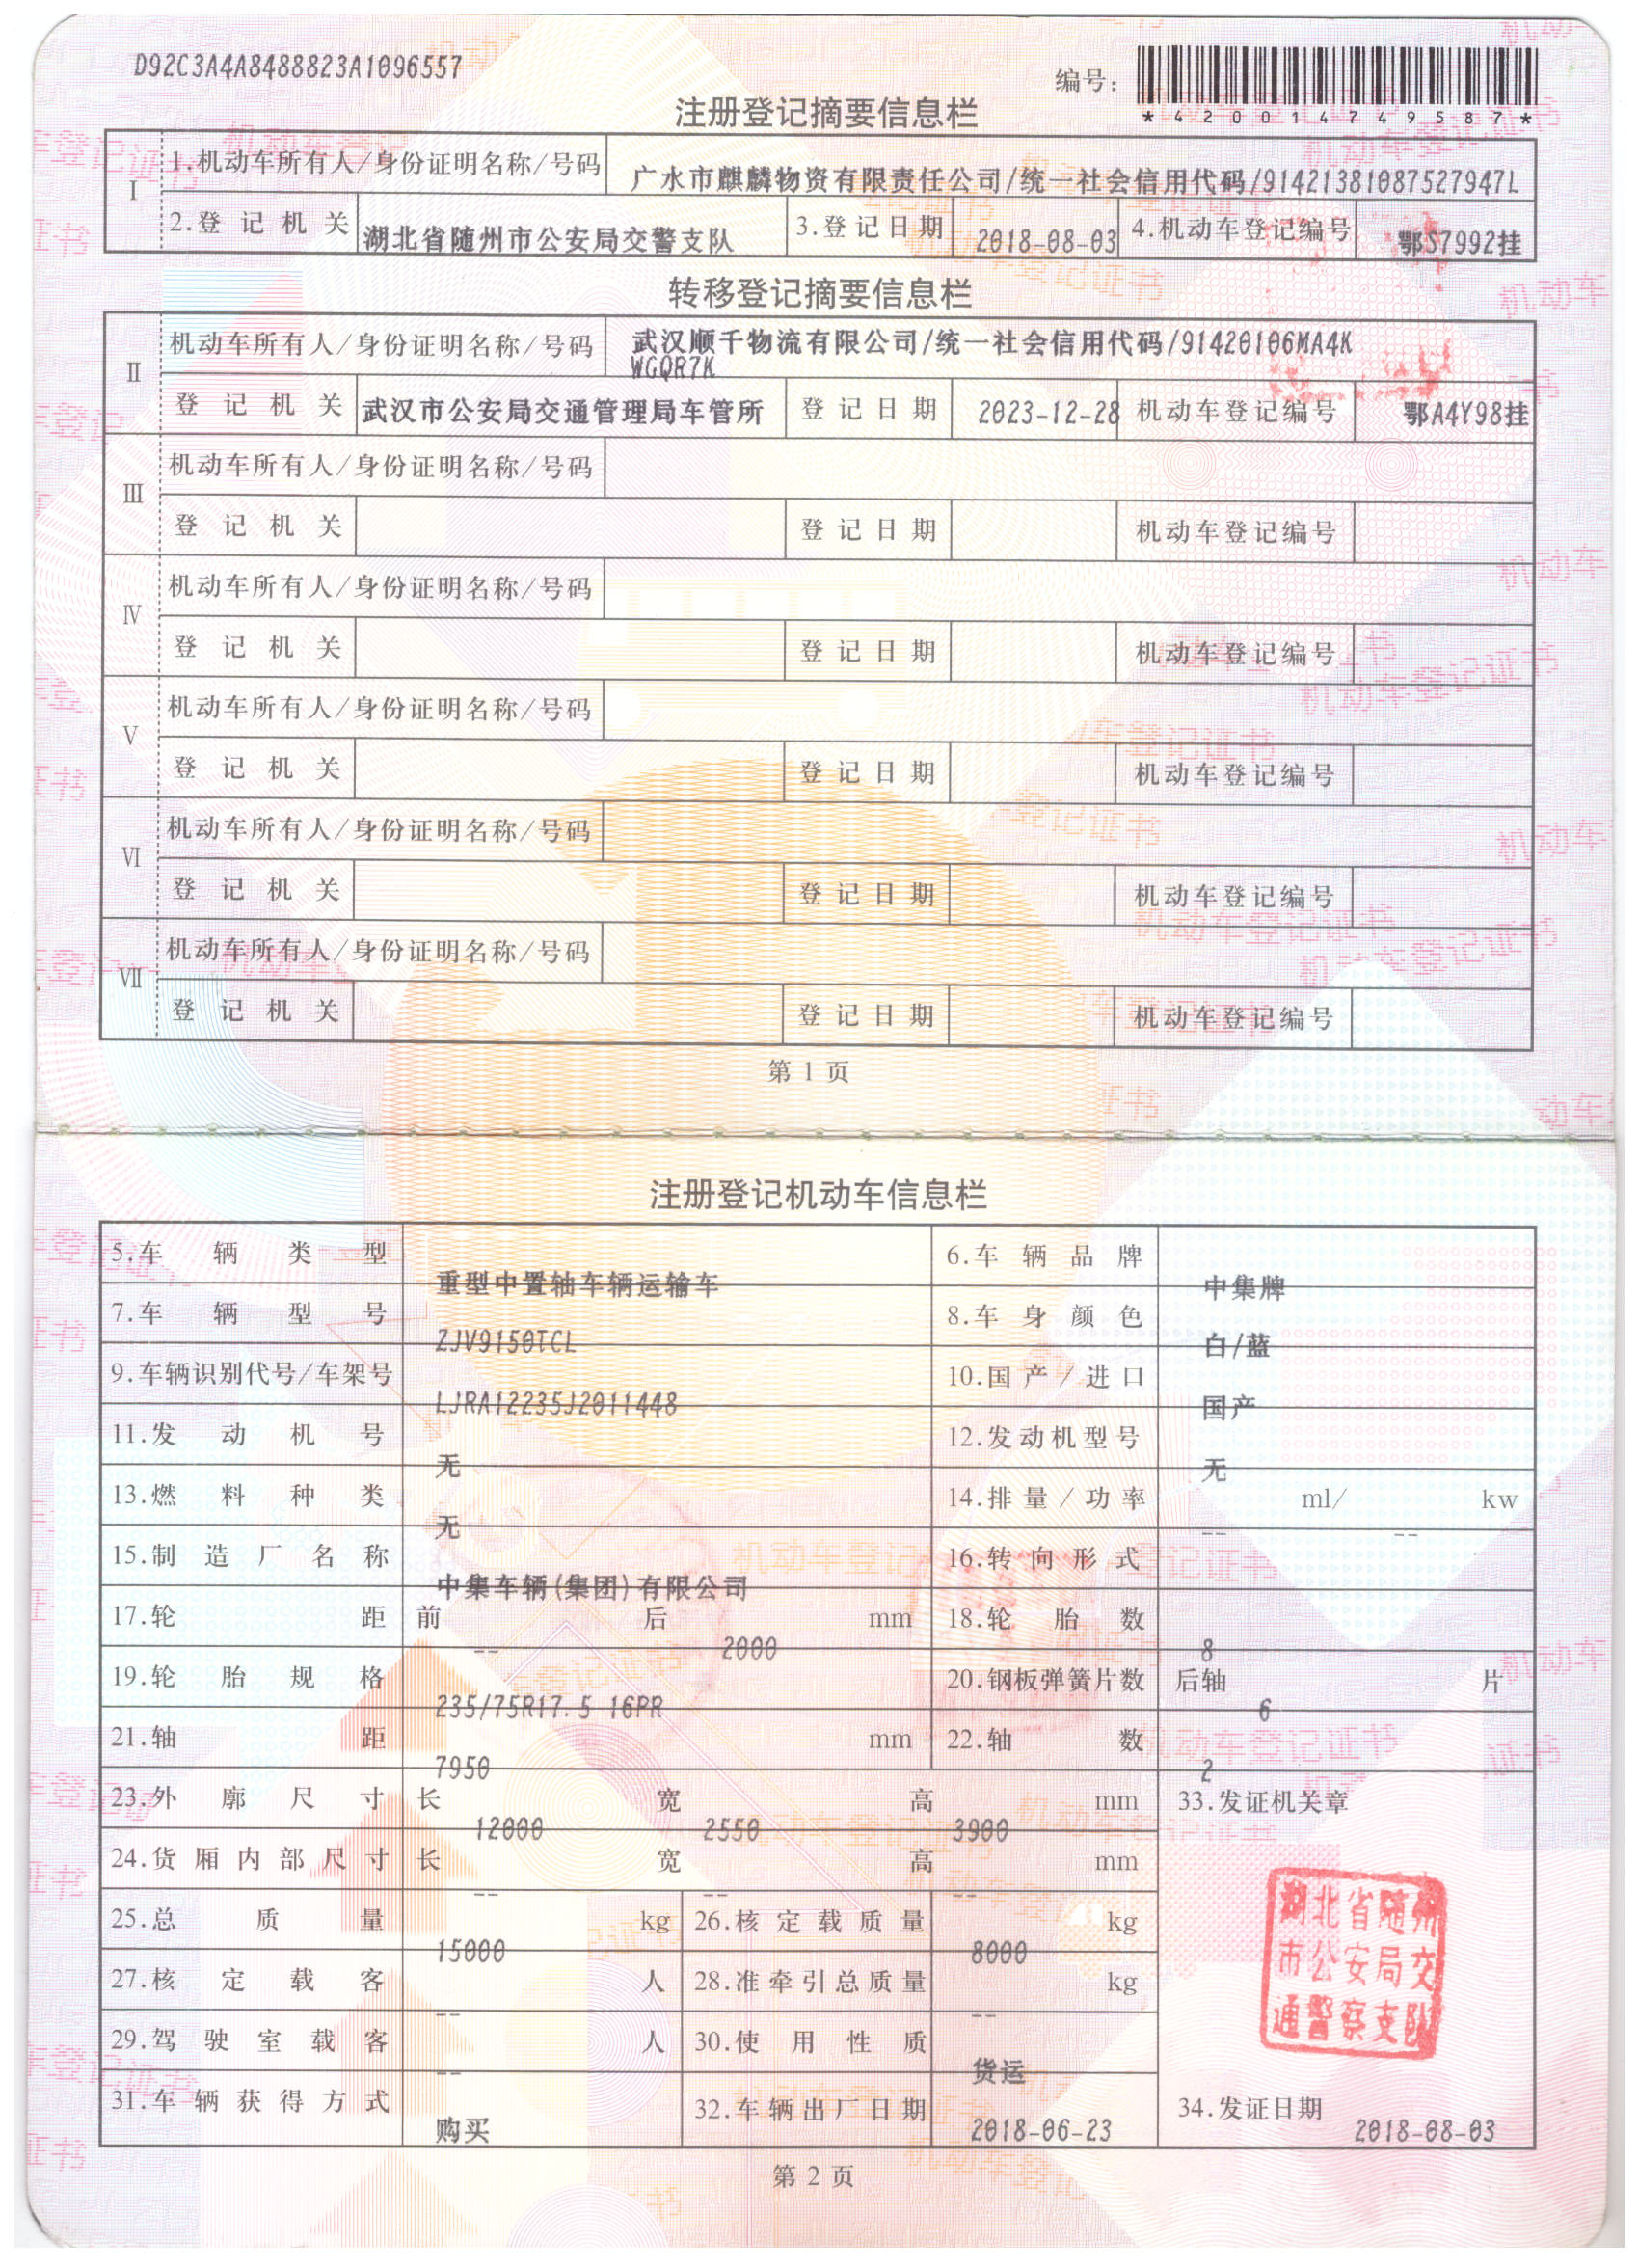 D92C3A4A8488823A1096557
编号:
*420014749587*
注册登记摘要信息栏
I
1.机动车所有人/身份证明名称/号码 广水市麒麟物资有限责任公司/统一社会信用代码/91421381087527947L
2.登记机关 湖北省随州市公安局交警支队 3.登记日期 2018-08-03 4.机动车登记编号 鄂S7992挂
转移登记摘要信息栏
II
机动车所有人/身份证明名称/号码 武汉顺千物流有限公司/统一社会信用代码/91420106MA4K
WGQR7K
登记机关 武汉市公安局交通管理局车管所 登记日期 2023-12-28 机动车登记编号 鄂A4Y98挂
III
机动车所有人/身份证明名称/号码
登记机关 登记日期 机动车登记编号
IV
机动车所有人/身份证明名称/号码
登记机关 登记日期 机动车登记编号
V
机动车所有人/身份证明名称/号码
登记机关 登记日期 机动车登记编号
VI
机动车所有人/身份证明名称/号码
登记机关 登记日期 机动车登记编号
VII
机动车所有人/身份证明名称/号码
登记机关 登记日期 机动车登记编号
第1页
注册登记机动车信息栏
5.车辆类型 重型中置轴车辆运输车 6.车辆品牌 中集牌
7.车辆型号 ZJV9150TCL 8.车身颜色 白/蓝
9.车辆识别代号/车架号 LJRA12235J2011448 10.国产/进口 国产
11.发动机号 无 12.发动机型号 无
13.燃料种类 无 14.排量/功率 -- ml/ -- kw
15.制造厂名称 中集车辆(集团)有限公司 16.转向形式
17.轮距 前 -- 后 2000 mm 18.轮胎数 8
19.轮胎规格 235/75R17.5 16PR 20.钢板弹簧片数 后轴 6 片
21.轴距 7950 mm 22.轴数 2
23.外廓尺寸 长 12000 宽 2550 高 3900 mm 33.发证机关章
24.货厢内部尺寸 长 -- 宽 -- 高 -- mm
25.总质量 15000 kg 26.核定载质量 8000 kg
湖北省随州
市公安局交
通警察支队
27.核定载客 -- 人 28.准牵引总质量 -- kg
29.驾驶室载客 -- 人 30.使用性质 货运
31.车辆获得方式 购买 32.车辆出厂日期 2018-06-23 34.发证日期 2018-08-03
第2页